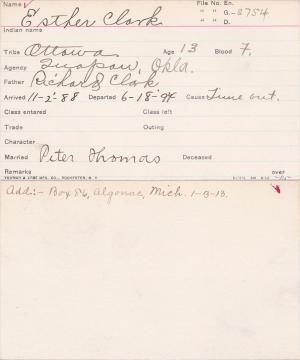 Name Esther Clark File No. En.
" " G.-8754
Indian name " " D.
Tribe Ottowa Age 13 Blood F.
Agency Quapaw, Okla.
Father Richard Clark
Arrived 11-2-88 Departed 6-18-94 Cause Time out.
Class entered Class left
Trade Outing
Character
Married Peter Thomas Deceased
Remarks over
Add:- Box 86, Algonac, Mich. 1-3-13.